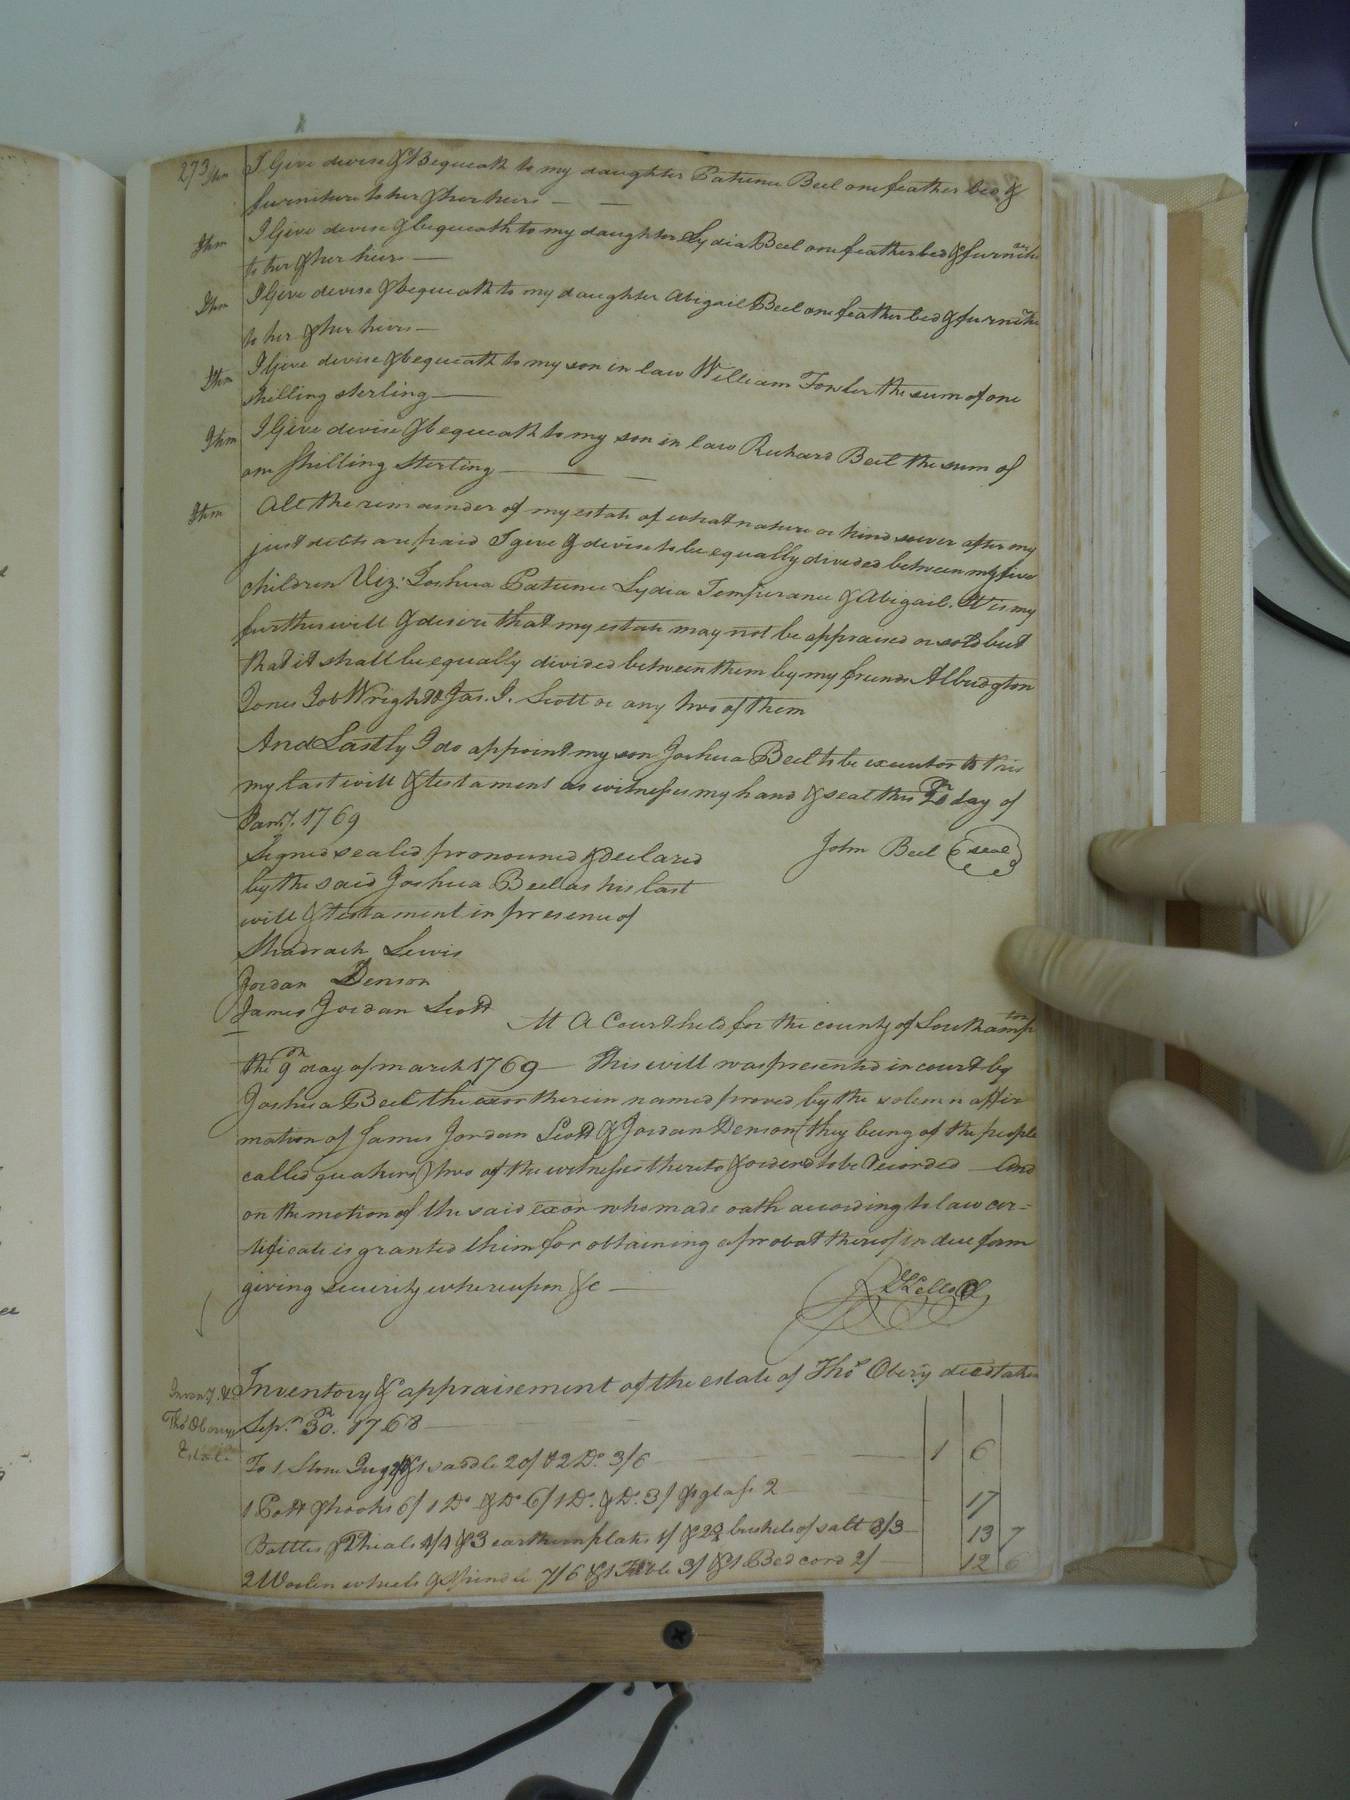 273 Itm I Give devise & Bequeath to my daughter Patience Beel one feather bed &
furniture to her & her heirs — —
Itm I Give devise & bequeath to my daughter Lydia Beel one feather bed & furniture
to her & her heirs —
Itm I Give devise & bequeath to my daughter Abigail Beel one feather bed & furniture
to her & her heirs —
Itm I Give devise & bequeath to my son in law William Fowler the sum of one
shilling sterling —
Itm I Give devise & bequeath to my son in law Richard Beel the sum of
one shilling sterling — —
Itm All the remainder of my estate of what nature or kind soever after my
just debts are paid I give & devise to be equally divided between my five
children Viz: Joshua Patience Lydia Temperance & Abigail. It is my
further will & desire that my estate may not be appraised or sold but
that it shall be equally divided between them by my friends Albridgton
Jones Job Wright & Jas. J. Scott or any two of them
And Lastly I do appoint my son Joshua Beel to be executor to this
my last will & testament as witness my hand & seal this day of
Jany. 1769
Signed sealed pronounced & declared John Beel seal
by the said Joshua Beel as his last
will & testament in presence of
Shadrach Lewis
Jordan Denson
James Jordan Scott
At A Court held for the county of Southampton
the 9th day of march 1769 — this will was presented in court by
Joshua Beel the exor therein named proved by the solemn affir
mation of James Jordan Scott & Jordan Denson (they being of the people
called quakers) two of the witnesses thereto & ordered to be recorded — And
on the motion of the said exor who made oath according to law cer=
tificate is granted him for obtaining a probat thereof in due form
giving security whereupon &c —
Inventory & appraisement of the estate of Thos Obery decd taken
Inventy. &c
Thos Oberys
Estate
Sepr. 30. 1768 —
To 1 Stone Jug & 1 saddle 20/ & 2 Do. 3/6 1 6
1 Pott & hooks 6/ 1 Do. & Do. 6/ 1 Do. & Do. 3/ & glass 2 17
Bottles & 2 Vials 4/4 & 3 earthen plates 1/ & 2 bushels of salt 8/3 — 13 7
2 Woolen wheels & spindle 7/6 & 1 Table 3/ & 1 Bed cord 2/ — 12 6